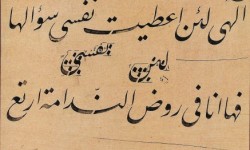 الهی لئن اعطیت نفسی سؤالها
فها انا فی روض الندامة ارتع